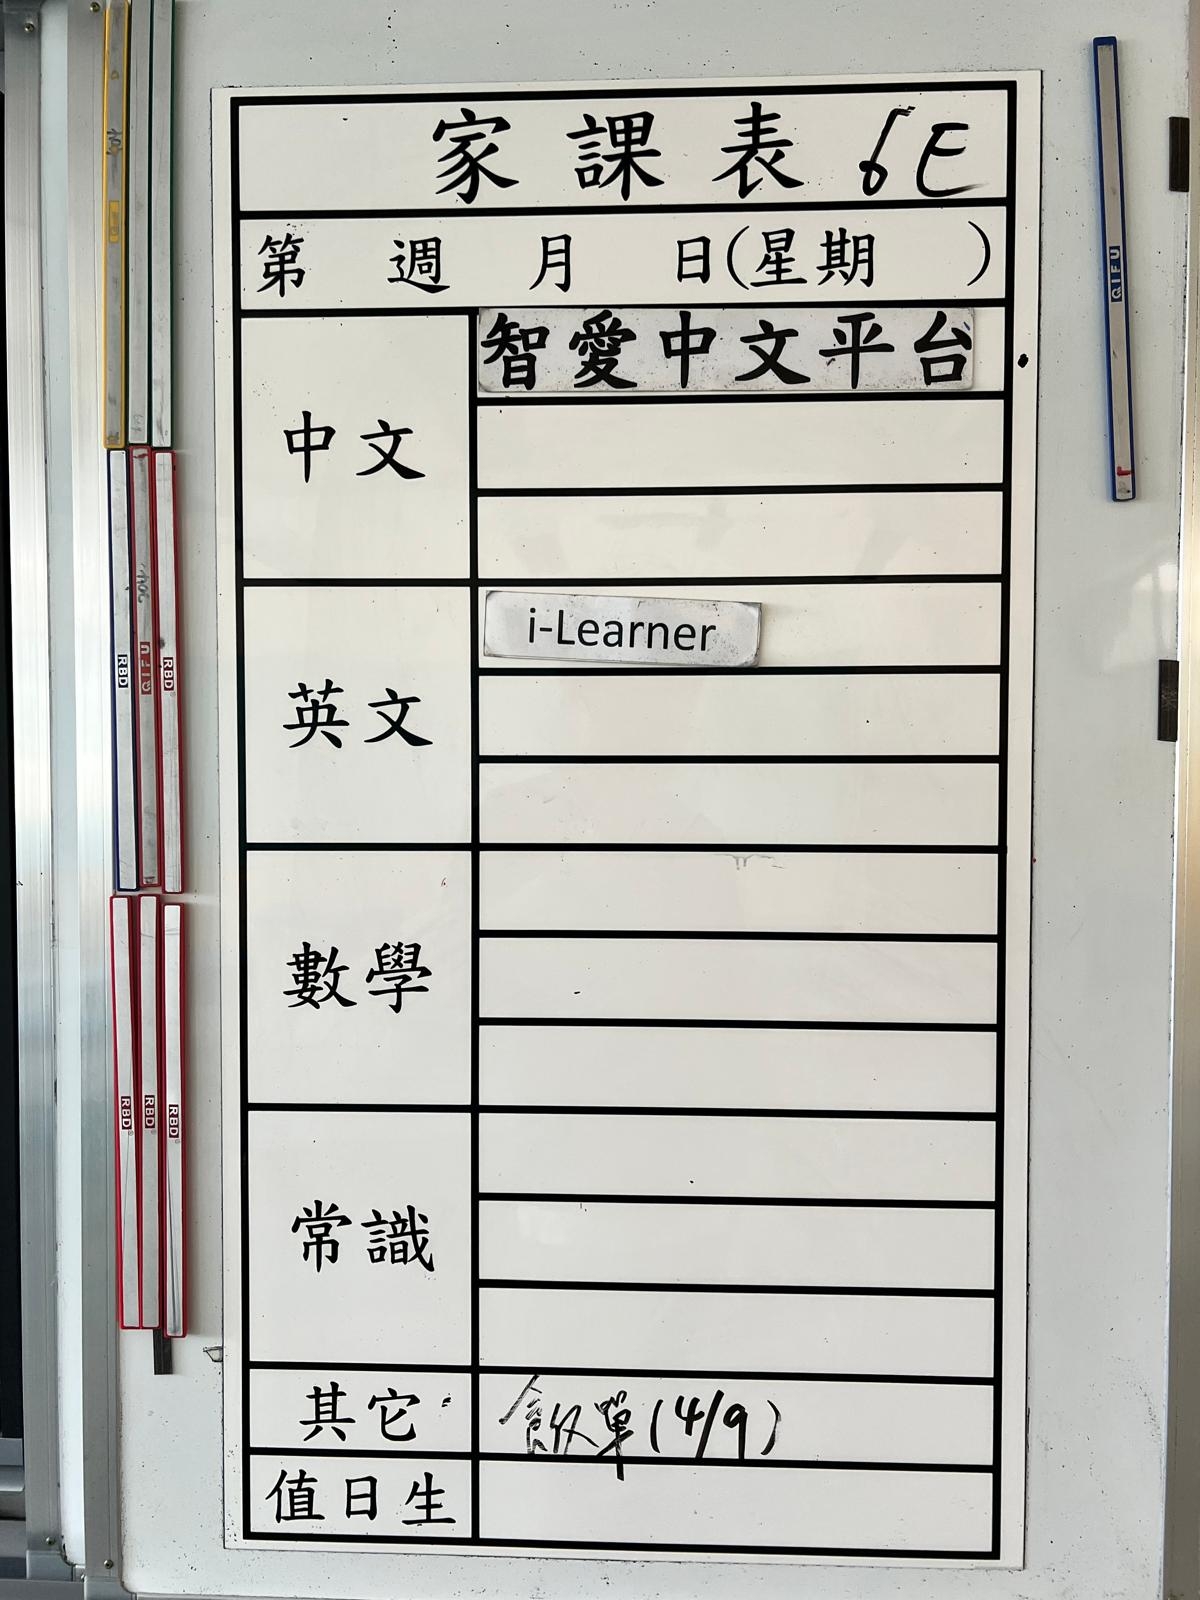 家課表 6E
第 週 月 日(星期 )
中文
智愛中文平台
英文
i-Learner
數學
常識
其它
飯單(4/9)
值日生
QIFU
RBD
QIFU
RBD
RBD
RBD
RBD